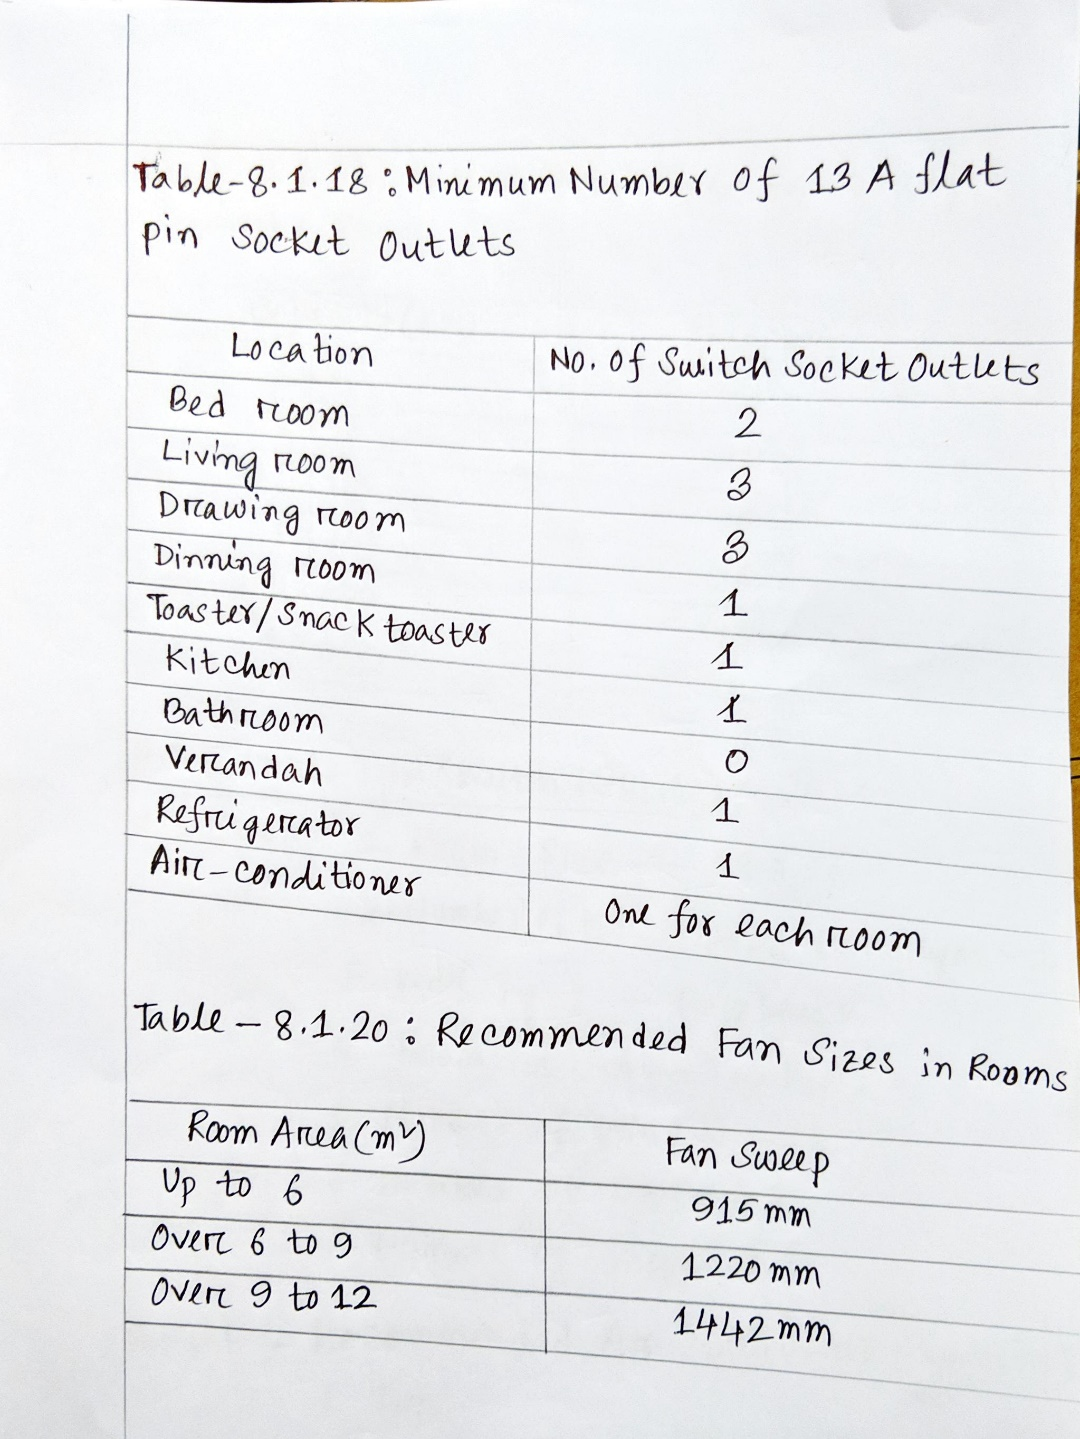 Table-8.1.18 : Minimum Number of 13 A flat
pin Socket Outlets
Location No. of Switch Socket Outlets
Bed room 2
Living room 3
Drawing room 3
Dinning room 1
Toaster/Snack toaster 1
Kitchen 1
Bathroom 0
Verandah 1
Refrigerator 1
Air-conditioner One for each room
Table - 8.1.20 : Recommended Fan Sizes in Rooms
Room Area (m²) Fan Sweep
Up to 6 915 mm
Over 6 to 9 1220 mm
Over 9 to 12 1442 mm